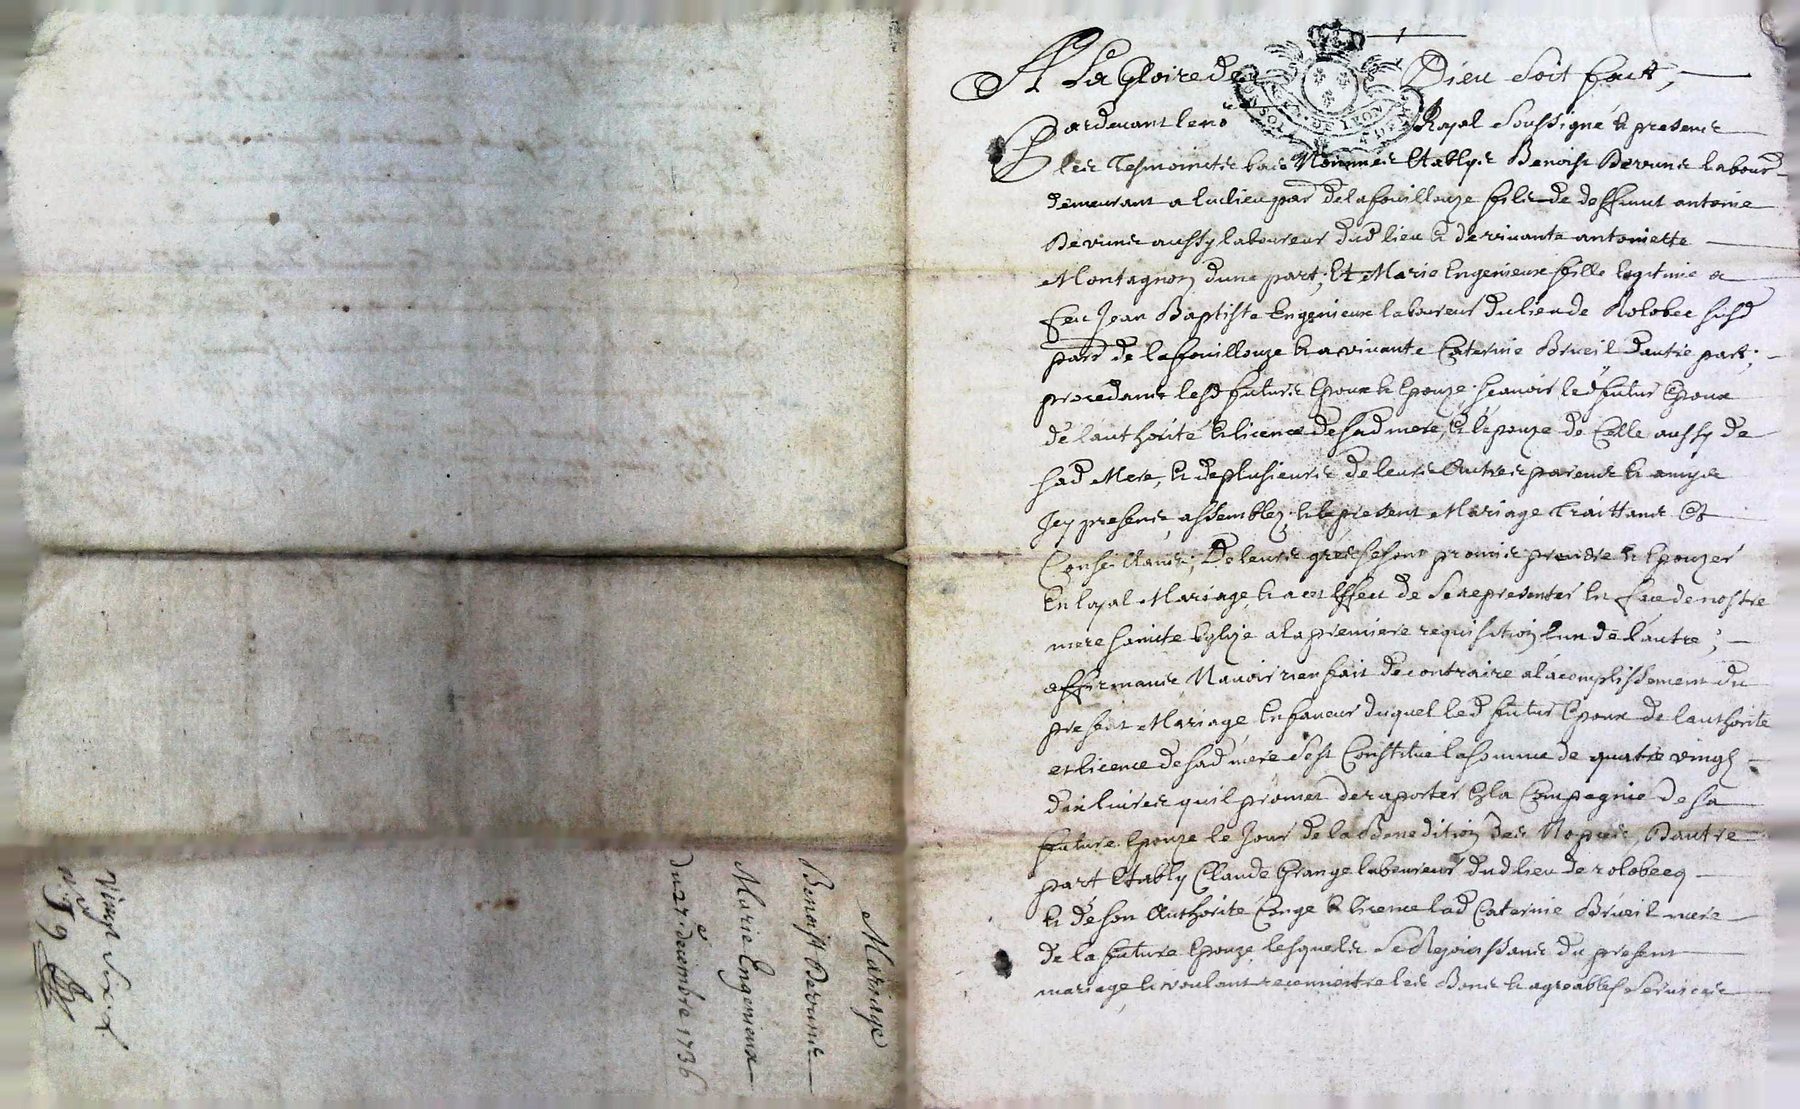 A La Gloire de Dieu Soit faict,
Pardevant le no.re Royal Soussigné & presents
les Tesmoincts bas Nommes Establys Benoist Dervins labour.
demeurant au lieu par.e de lafouillouze fils de deffunt antoine
Dervins aussy laboureur dud lieu & de vivante antoinette
Montagnon d'une part, Et Marie Engenieux fille legitime a
feu Jean Baptiste Engenieux laboureur du lieu de Rolobec susd
par.e de lafouillouze & a vivante Caterine Brueil d'autre part;
procedants lesd futurs Epoux & Epouze, scavoir led futur Epoux
de l'authorité & licence de sad mere, & l'epouze de Celle aussy de
sad Mere, & de plusieurs de leurs Autres parents & amys
Icy presents, assemblez, & le present Mariage Traittants Et
Conseillants; De leurs grés se sont promis prendre & Epouzer
En loyal Mariage, & a cet Effect de Se representer En face de nostre
mere saincte Eglize a la premiere requisition l'un de l'autre;
affirmants N'avoir rien fait de contraire a l'acomplissement du
present Mariage, En faveur duquel led futur Epoux de l'authorité
et licence de sad mere s'est Constitué la somme de quatre vingt
dix livres qu'il promet de raporter En la Compagnie de sa
future Epouze le Jour de la Benedition des Nopces, D'autre
part Estably Claude Grange laboureur dud lieu de rolobecq
& de son Authorité Congé & licence lad Caterine Brueil mere
de la future Epouze, lesquels Se Rejouissants du present
mariage, & voulant reconnoitre les Bons & agreables Services
Mariage
Benoist Dervins
Marie Engenieux
Du 27.e decembre 1736
Vingt Six
n.o 59